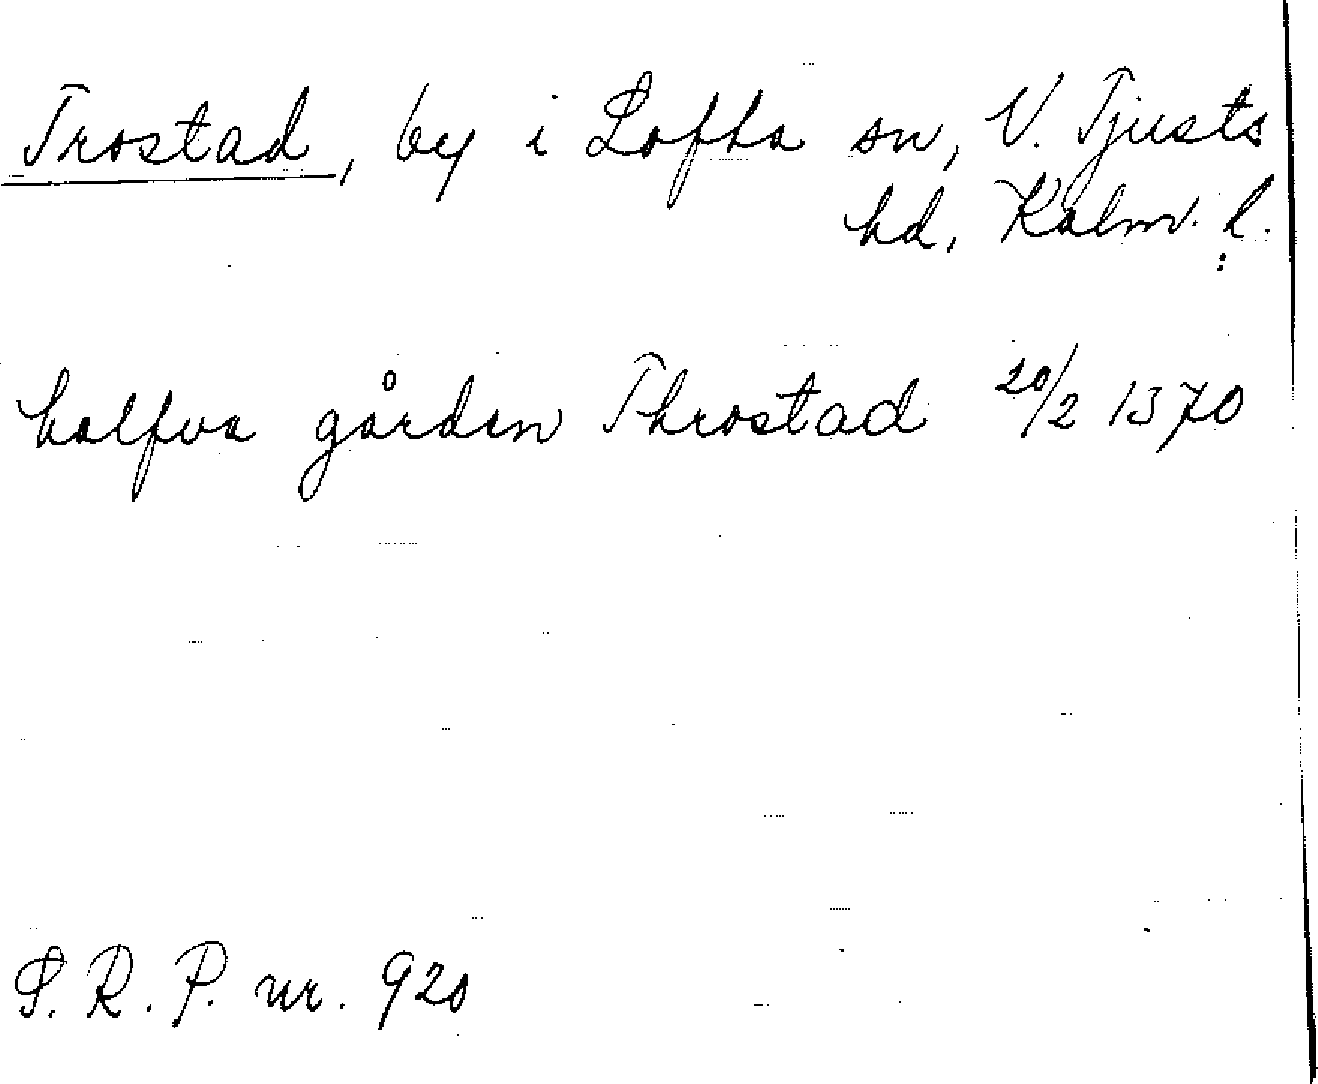 Trostad, by i Lofta sn, V. Tjusts
hd, Kalm. l.
halfva gården Throstad 20/2 1370
S. R. P. nr. 920